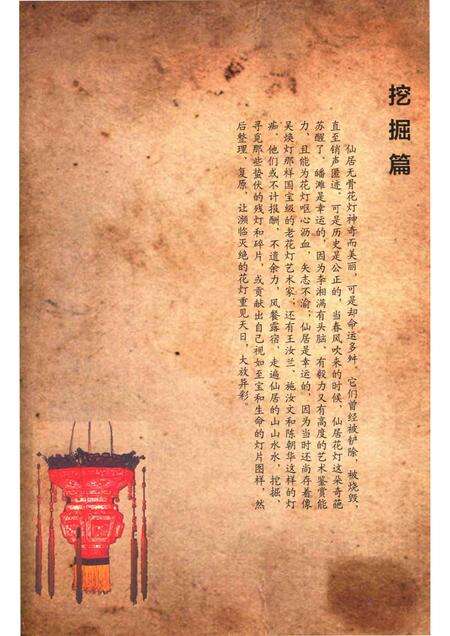 挖掘篇
仙居无骨花灯神奇而美丽，可是却命运多舛，它们曾经被铲除，被烧毁，
直至销声匿迹。可是历史是公正的，当春风吹来的时候，仙居花灯这朵奇葩
苏醒了。皤滩是幸运的，因为李湘满有头脑、有毅力又有高度的艺术鉴赏能
力，且能为花灯呕心沥血，矢志不渝；仙居是幸运的，因为当时还尚存着像
吴焕灯那样国宝级的老花灯艺术家；还有王汝兰、施汝文和陈朝华这样的灯
痴，他们或不计报酬，不遗余力，风餐露宿，走遍仙居的山山水水，挖掘、
寻觅那些蛰伏的残灯和碎片，或贡献出自己视如至宝和生命的灯片图样，然
后整理、复原，让濒临灭绝的花灯重见天日，大放异彩。